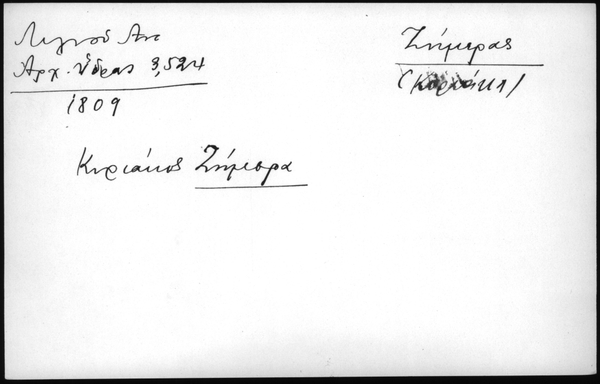 Λιγνού Αντ
Αρχ. Ύδρας 3,524
1809
Ζήμερας
(Κυριάκη)
Κυριάκος Ζήμερα